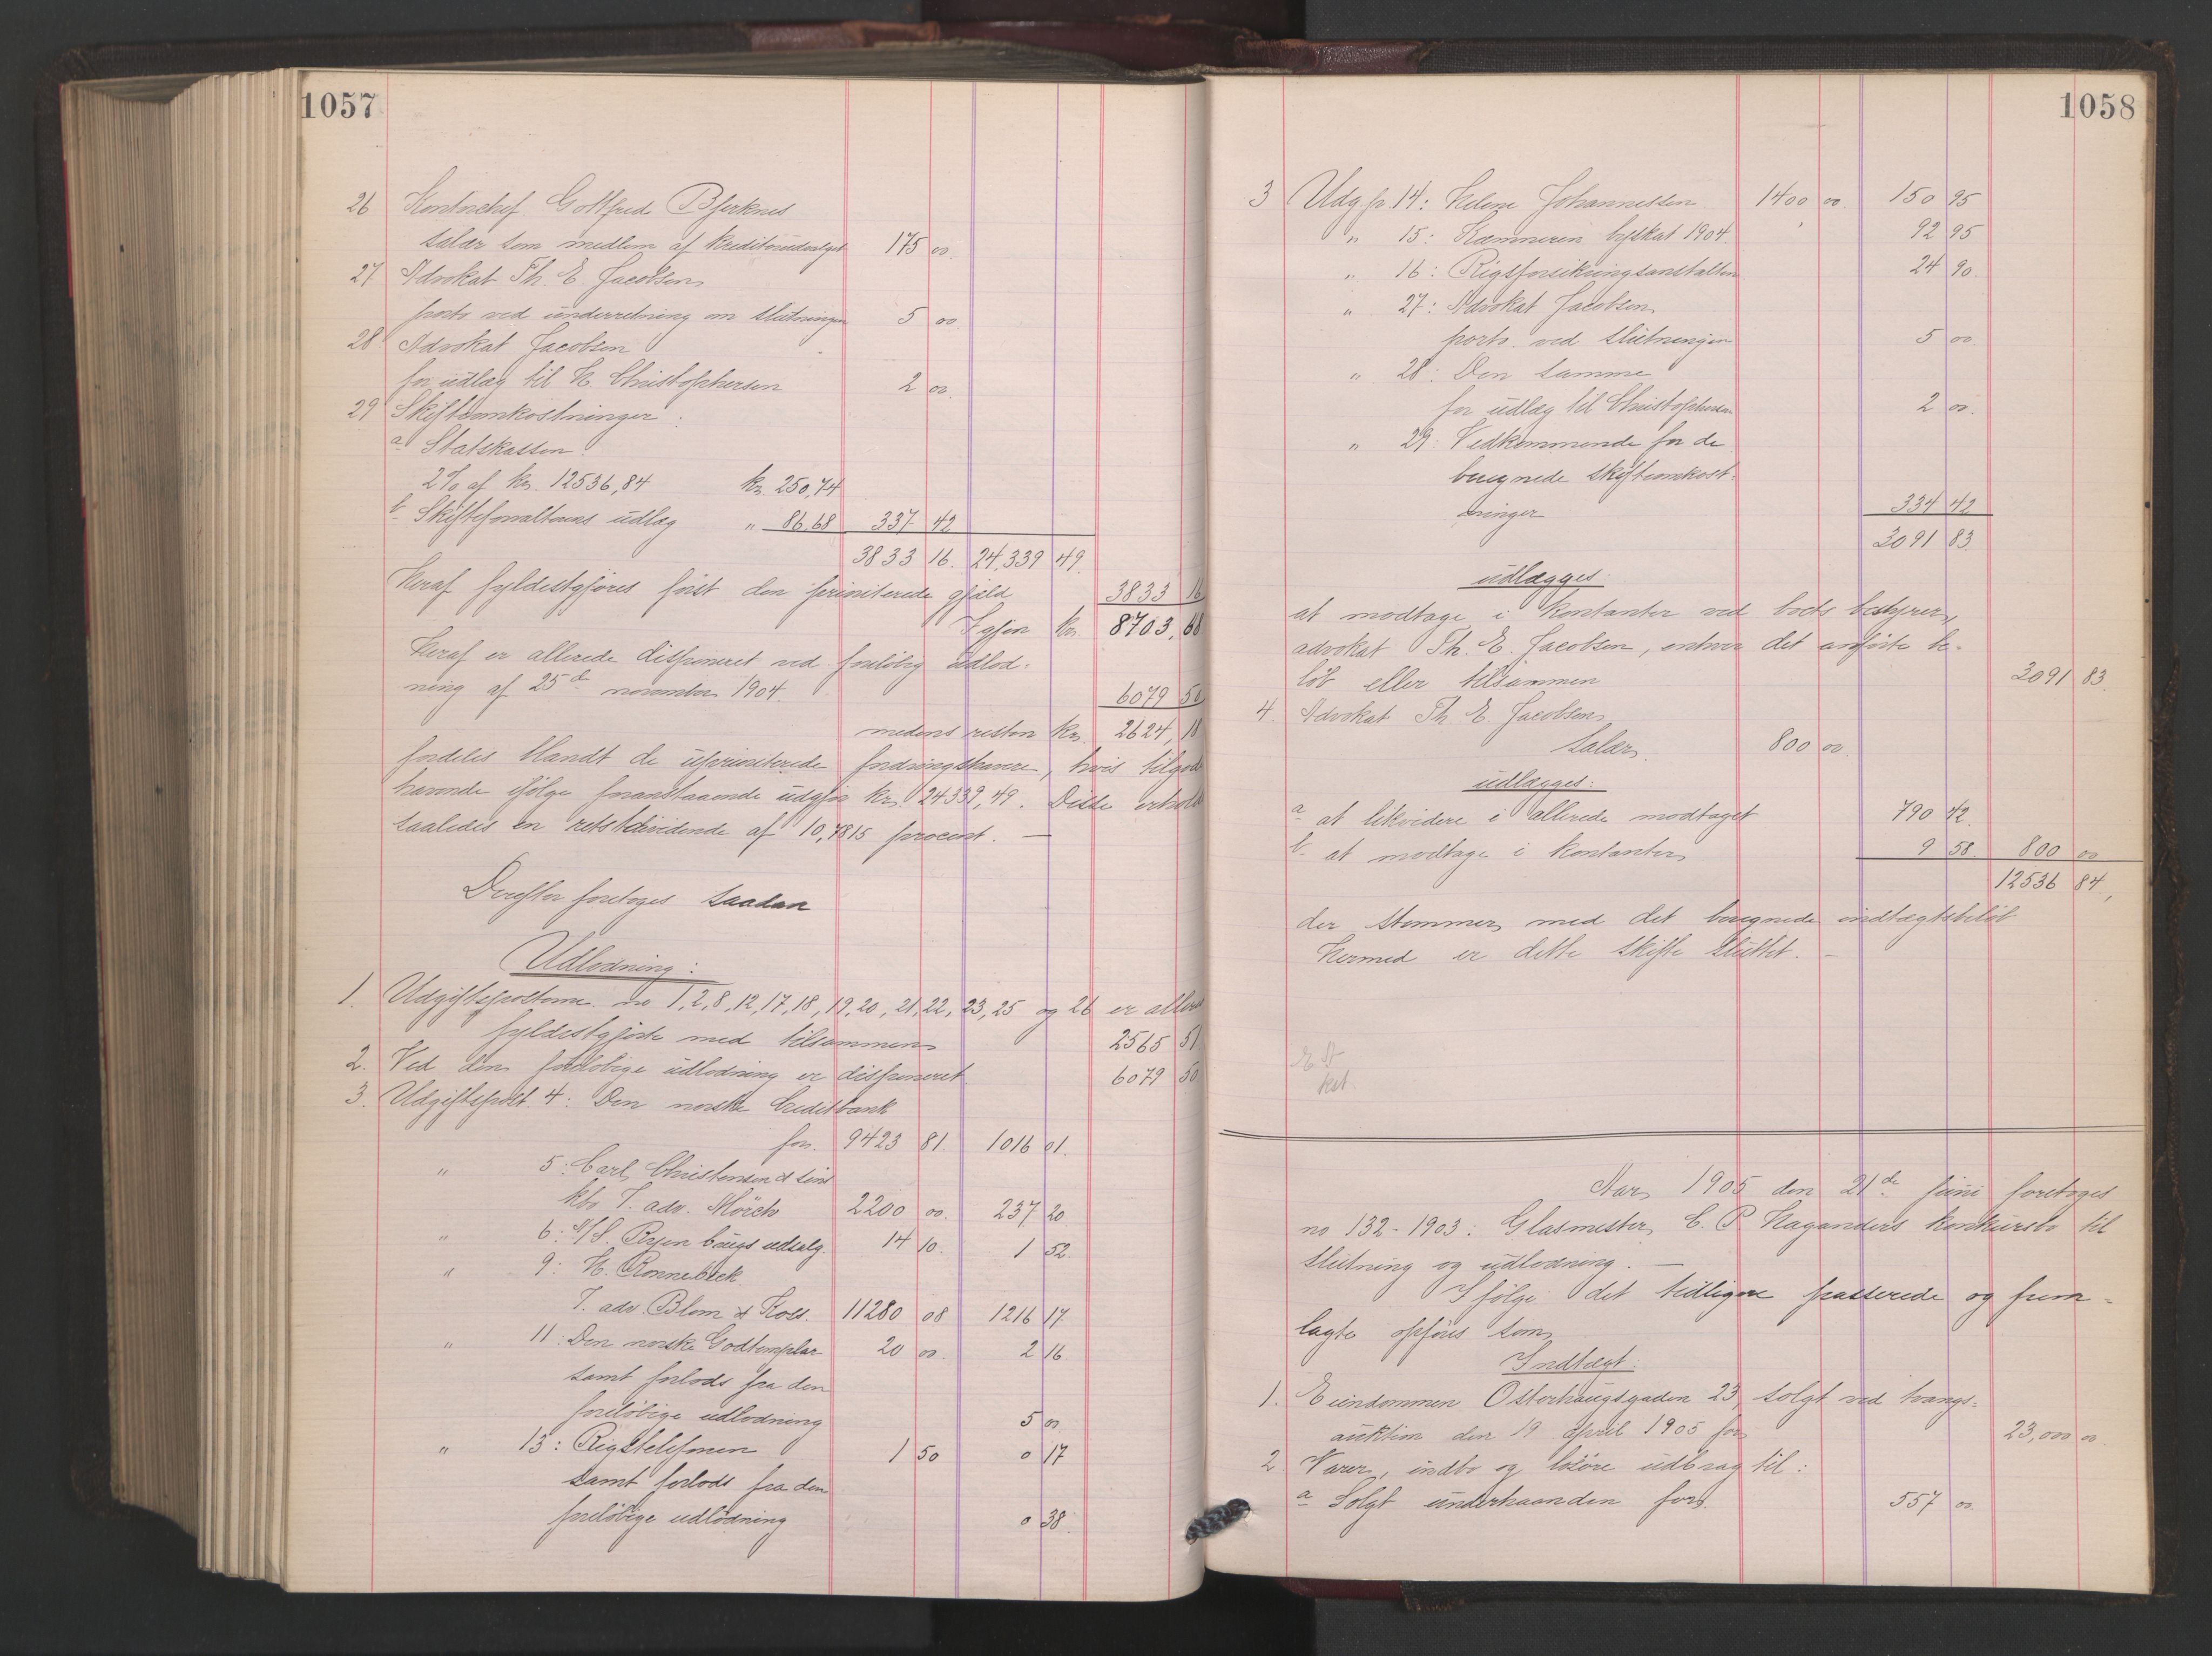 1057
26 Kontorchef Gottfred Bjerknes
salær som medlem af kreditorudvalget 175 00.
27 Advokat Th. E. Jacobsen
porto ved underretning om slutningen 5 00
28 Advokat Jacobsen
for udlæg til H. Christophersen 2 00.
29 Skifteomkostninger:
a Statskassen.
2% af kr. 12536,84 kr. 250,74
b. Skifteforvalterens udlæg " 86.68 337 42
3833 16. 24,339 49.
Heraf fyldestgjøres først den prioriterede gjæld 3833 16
Igjen kr. 8703,68
Heraf er allerede disponeret ved foreløbig udlod-
ning af 25de november 1904. 6079 50
medens resten kr. 2624,18
fordeles blandt de uprioriterede fordringshavere, hvis tilgode
havende ifølge foranstaaende udgjør kr. 24339,49. Disse erholde
saaledes en restdividende af 10,7815 procent. —
Derefter foretoges saadan
Udlodning:
1. Udgiftsposterne no 1, 2, 8, 12, 17, 18, 19, 20, 21, 22, 23, 25 og 26 er allerede
fyldestgjorte med tilsammen 2565 51
2. Ved den foreløbige udlodning er disponeret 6079 50
3. Udgiftspost 4: Den norske Creditbank
for. 9423 81. 1016 01.
" 5: Carl Christensen & søns
kbo T. adv. Mørch 2200 00. 237 20
" 6: A/S. Ryen brugs udsalg. 14 10. 1 52.
" 9: H. Rønnebeck
T. adv. Blom & Koss. 11280 08 1216 17.
" 11: Den norske Godtemplar 20 00. 2 16.
samt forlods fra den
foreløbige udlodning 5 00
" 13: Rigstelefonen 1 50 0 17
samt forlods fra den
foreløbige udlodning 0 38.
1058
3 Udg.p. 14: Helene Johannessen 1400 00. 150 95
" 15: Kæmneren byskat 1904. 92 95
" 16: Rigsforsikringsanstalten 24 90.
" 27: Advokat Jacobsen
porto ved slutningen 5 00.
" 28: Den samme
for udlæg til Christophersen 2 00.
" 29: Vedkommende for de
beregnede skifteomkost-
ninger 337 42
3091 83
udlægges:
at modtage i kontanter ved boets bestyrer,
advokat Th. E. Jacobsen, enhver det anførte be-
løb eller tilsammen 3091 83.
4. Advokat Th E. Jacobsen
Salær. 800 00.
udlægges:
a at likvidere i allerede modtaget 790 42.
b. at modtage i kontanter 9 58. 800 00
12536 84,
der stemmer med det beregnede indtægtsbeløb
Hermed er dette skifte sluttet. —
Aar 1905 den 21de juni foretoges
no 132-1903: Glasmester C. P. Haganders konkursbo til
slutning og udlodning. —
Ifølge det tidligere passerede og frem-
lagte opføres som
Indtægt.
1. Eiendommen Osterhausgaden 23, solgt ved tvangs-
auktion den 19 april 1905 for 23,000 00.
2 Varer, indbo og løsøre udbragt til:
a Solgt underhaanden for. 557 00.